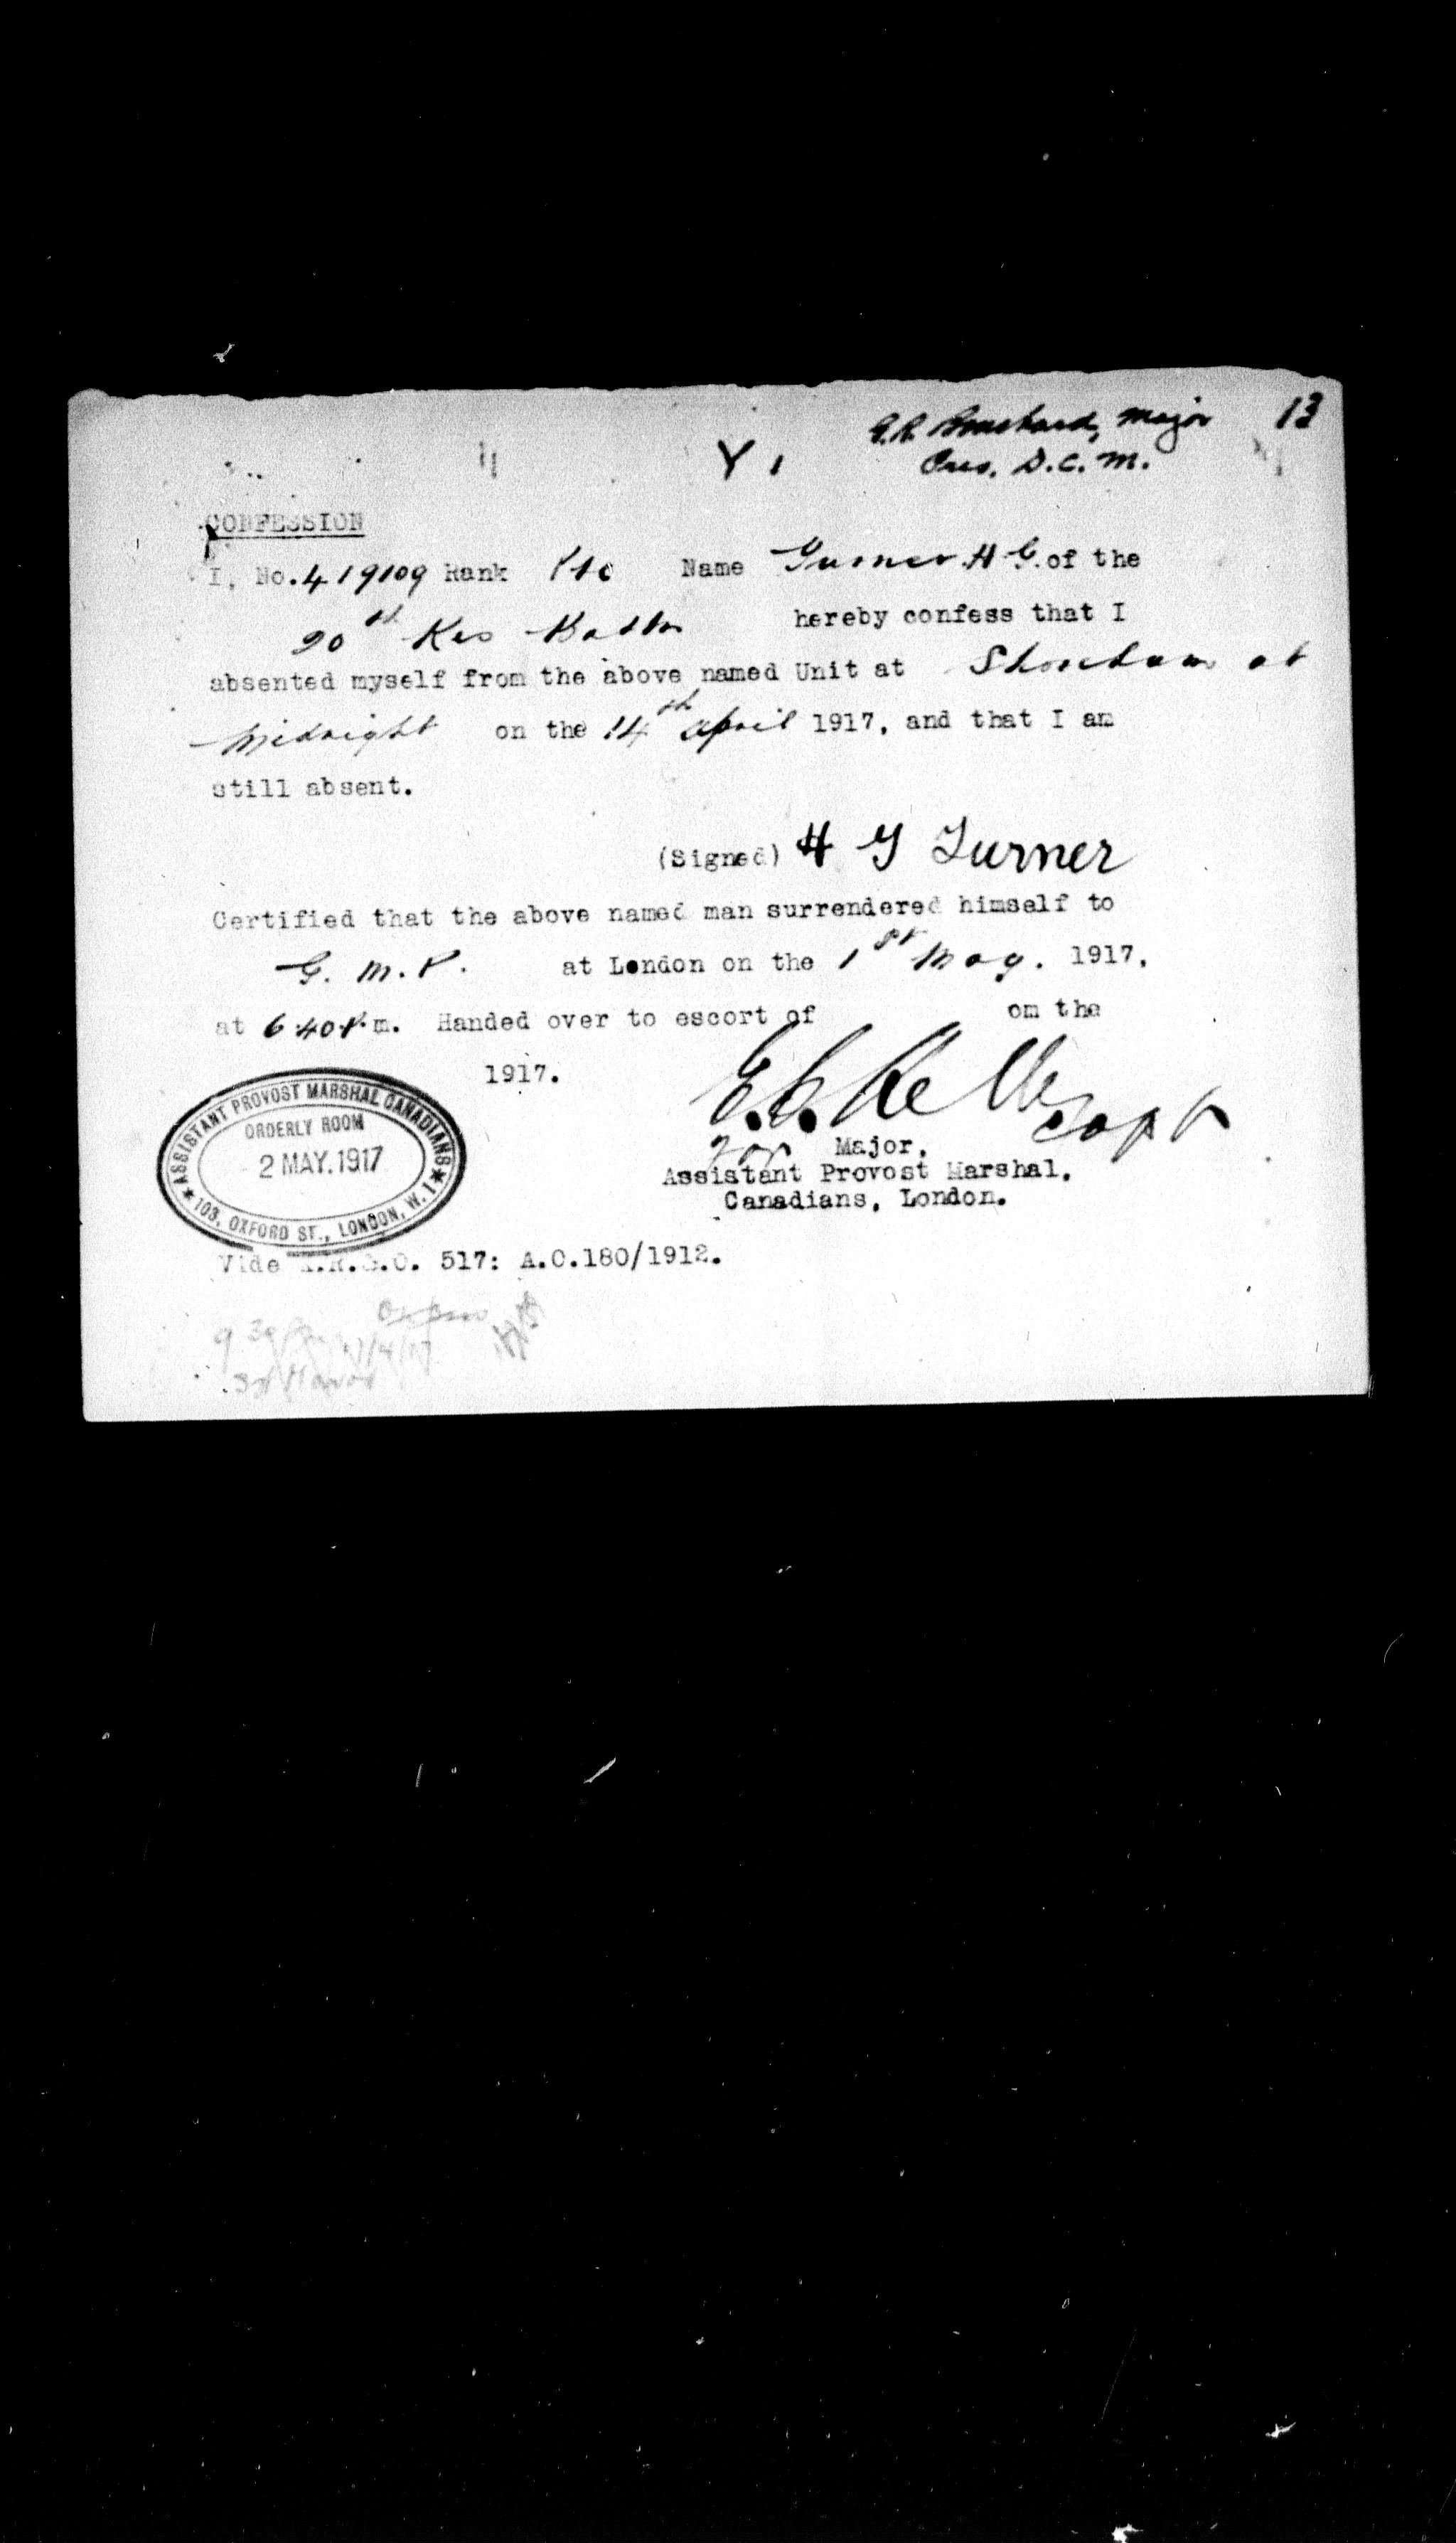 13
Major
Y 1
Pres. D.C.M.
CONFESSION
I, No. 419109 Rank Pte Name Turner. H G. of the
20th Res Battn hereby confess that I
absented myself from the above named Unit at Shoreham at
Midnight on the 14th April 1917, and that I am
still absent.
(Signed) H G Turner
Certified that the above named man surrendered himself to
G. M. P. at London on the 1st May. 1917,
at 6.40 P.m. Handed over to escort of om the
1917.
Capt
for Major,
Assistant Provost Marshal,
Canadians, London.
ASSISTANT PROVOST MARSHAL CANADIANS
ORDERLY ROOM
2 MAY. 1917
103, OXFORD ST., LONDON, W. 1
Vide 517: A.O.180/1912.